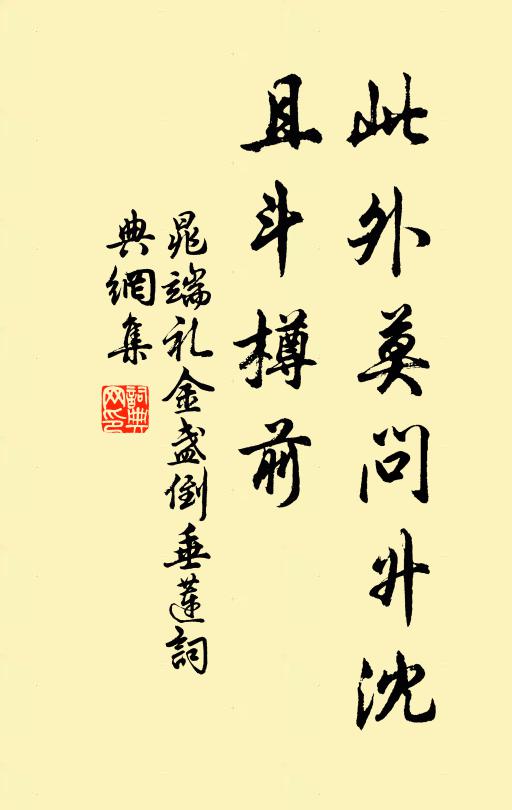 此外莫问升沈
且斗樽前
晁端礼金盏倒垂莲词
典網集
詞典
网印